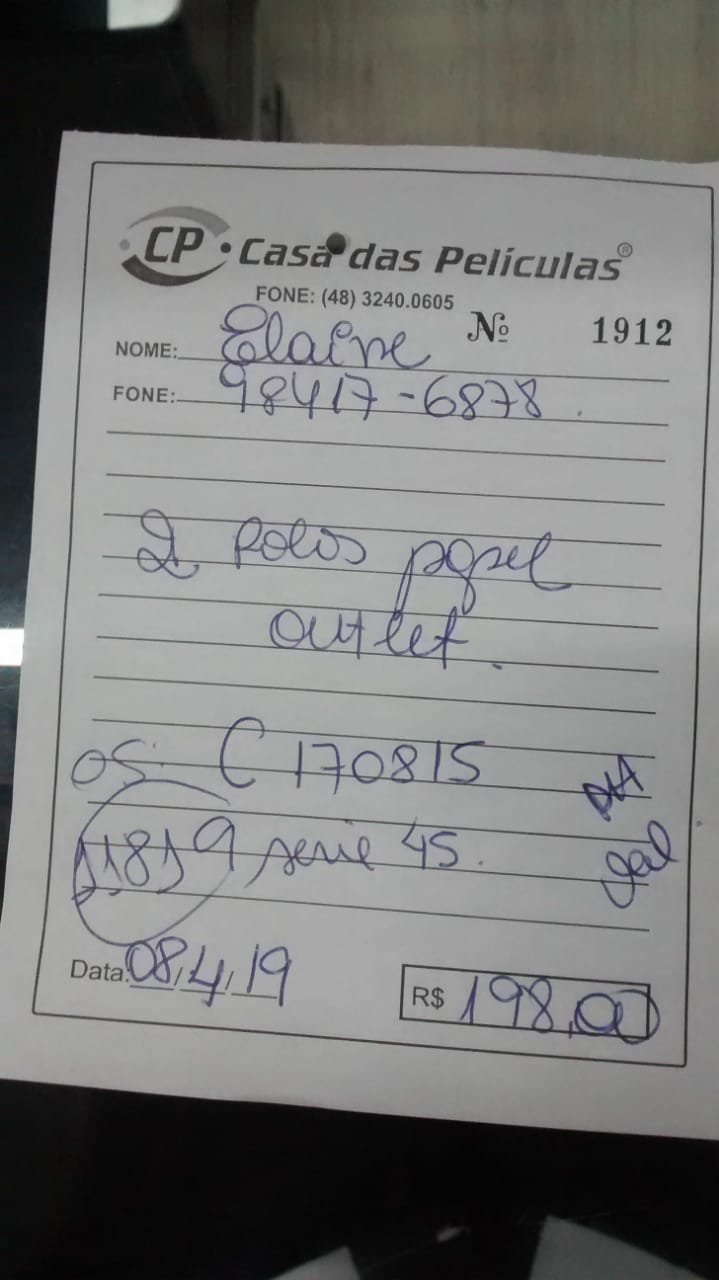 CP · Casa das Películas®
FONE: (48) 3240.0605
Nº 1912
NOME: Elaine
FONE: 98417-6878
2 Rolos papel
outlet.
OS: C 170815
11819 serie 45.
Data: 08/4/19
R$ 198,00